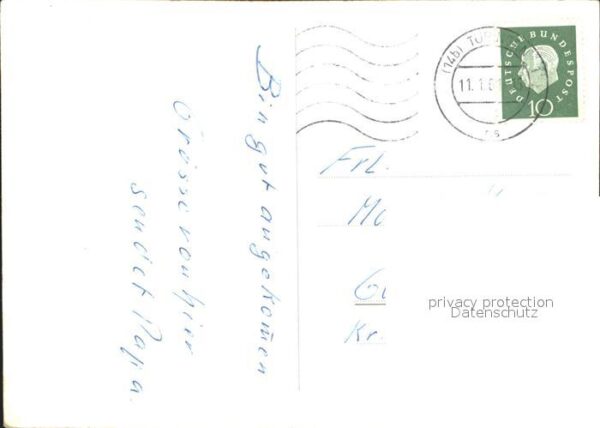 Bin gut angekom̄en
Grüsse von hier
sendet Papa.
(14b)
11.1.6
DEUTSCHE BUNDESPOST
10
Frl.
Kr.
privacy protection
Datenschutz